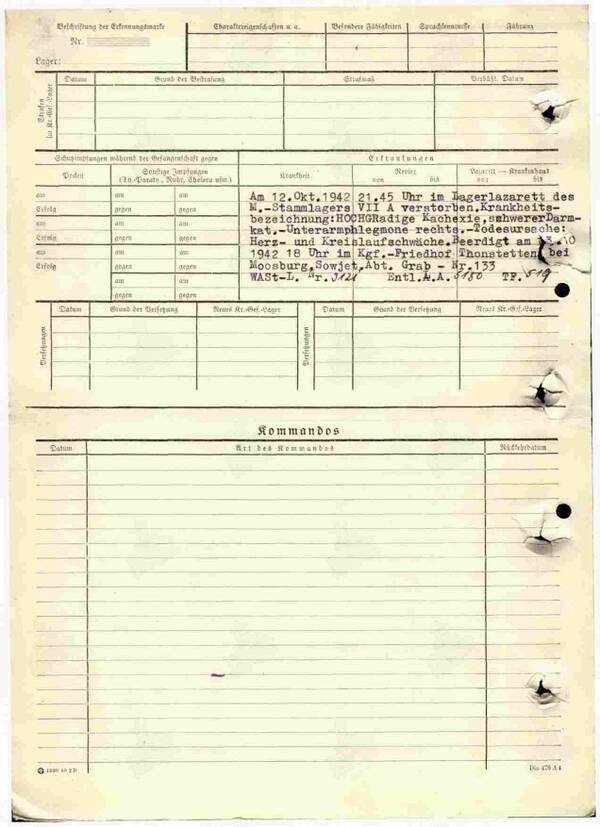 Beschriftung der Erkennungsmarke
Nr.
Lager:
Charaktereigenschaften u. a.
Besondere Fähigkeiten
Sprachkenntnisse
Führung
Strafen im Kr.-Gef.-Lager
Datum
Grund der Bestrafung
Strafmaß
Verbüßt, Datum
Schutzimpfungen während der Gefangenschaft gegen
Erkrankungen
Pocken
Sonstige Impfungen
(Ty.-Paraty., Ruhr, Cholera usw.)
Krankheit
Revier
von bis
Lazarett — Krankenhaus
von bis
am am am
Erfolg gegen gegen
am am am
Erfolg gegen gegen
am am am
Erfolg gegen gegen
am am
gegen gegen
Am 12.Okt.1942 21.45 Uhr im Lagerlazarett des
M.-Stammlagers VII A verstorben.Krankheits-
bezeichnung:HOCHGRadige Kachexie,schwererDarm-
kat.-Unterarmphlegmone rechts.-Todesursache:
Herz- und Kreislaufschwäche.Beerdigt am
1942 18 Uhr im Kgf.-Friedhof Thonstetten bei
Moosburg,Sowjet,Abt. Grab - Nr.133
WASt-L. Nr. Entl.A.A. 5180 TP. 519
Versetzungen
Datum
Grund der Versetzung
Neues Kr.-Gef.-Lager
Versetzungen
Datum
Grund der Versetzung
Neues Kr.-Gef.-Lager
Kommandos
Datum
Art des Kommandos
Rückkehrdatum
Din 476 A 4